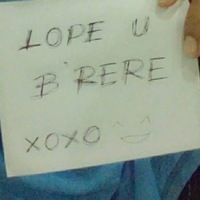 LOPE U
B'RERE
XOXO